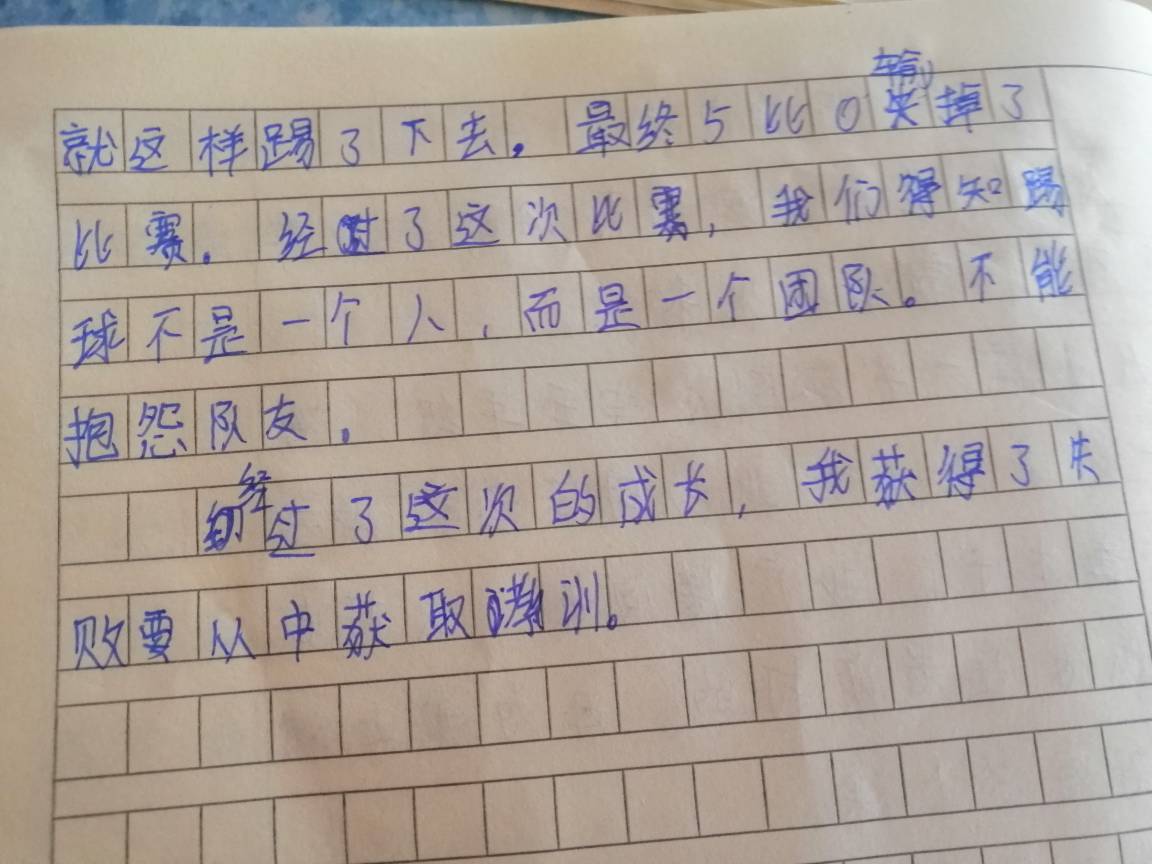 就这样踢了下去。最终5比0输掉了
比赛。经过了这次比赛，我们得知踢
球不是一个人，而是一个团队。不能
抱怨队友。
经过了这次的成长，我获得了失
败要从中获取教训。